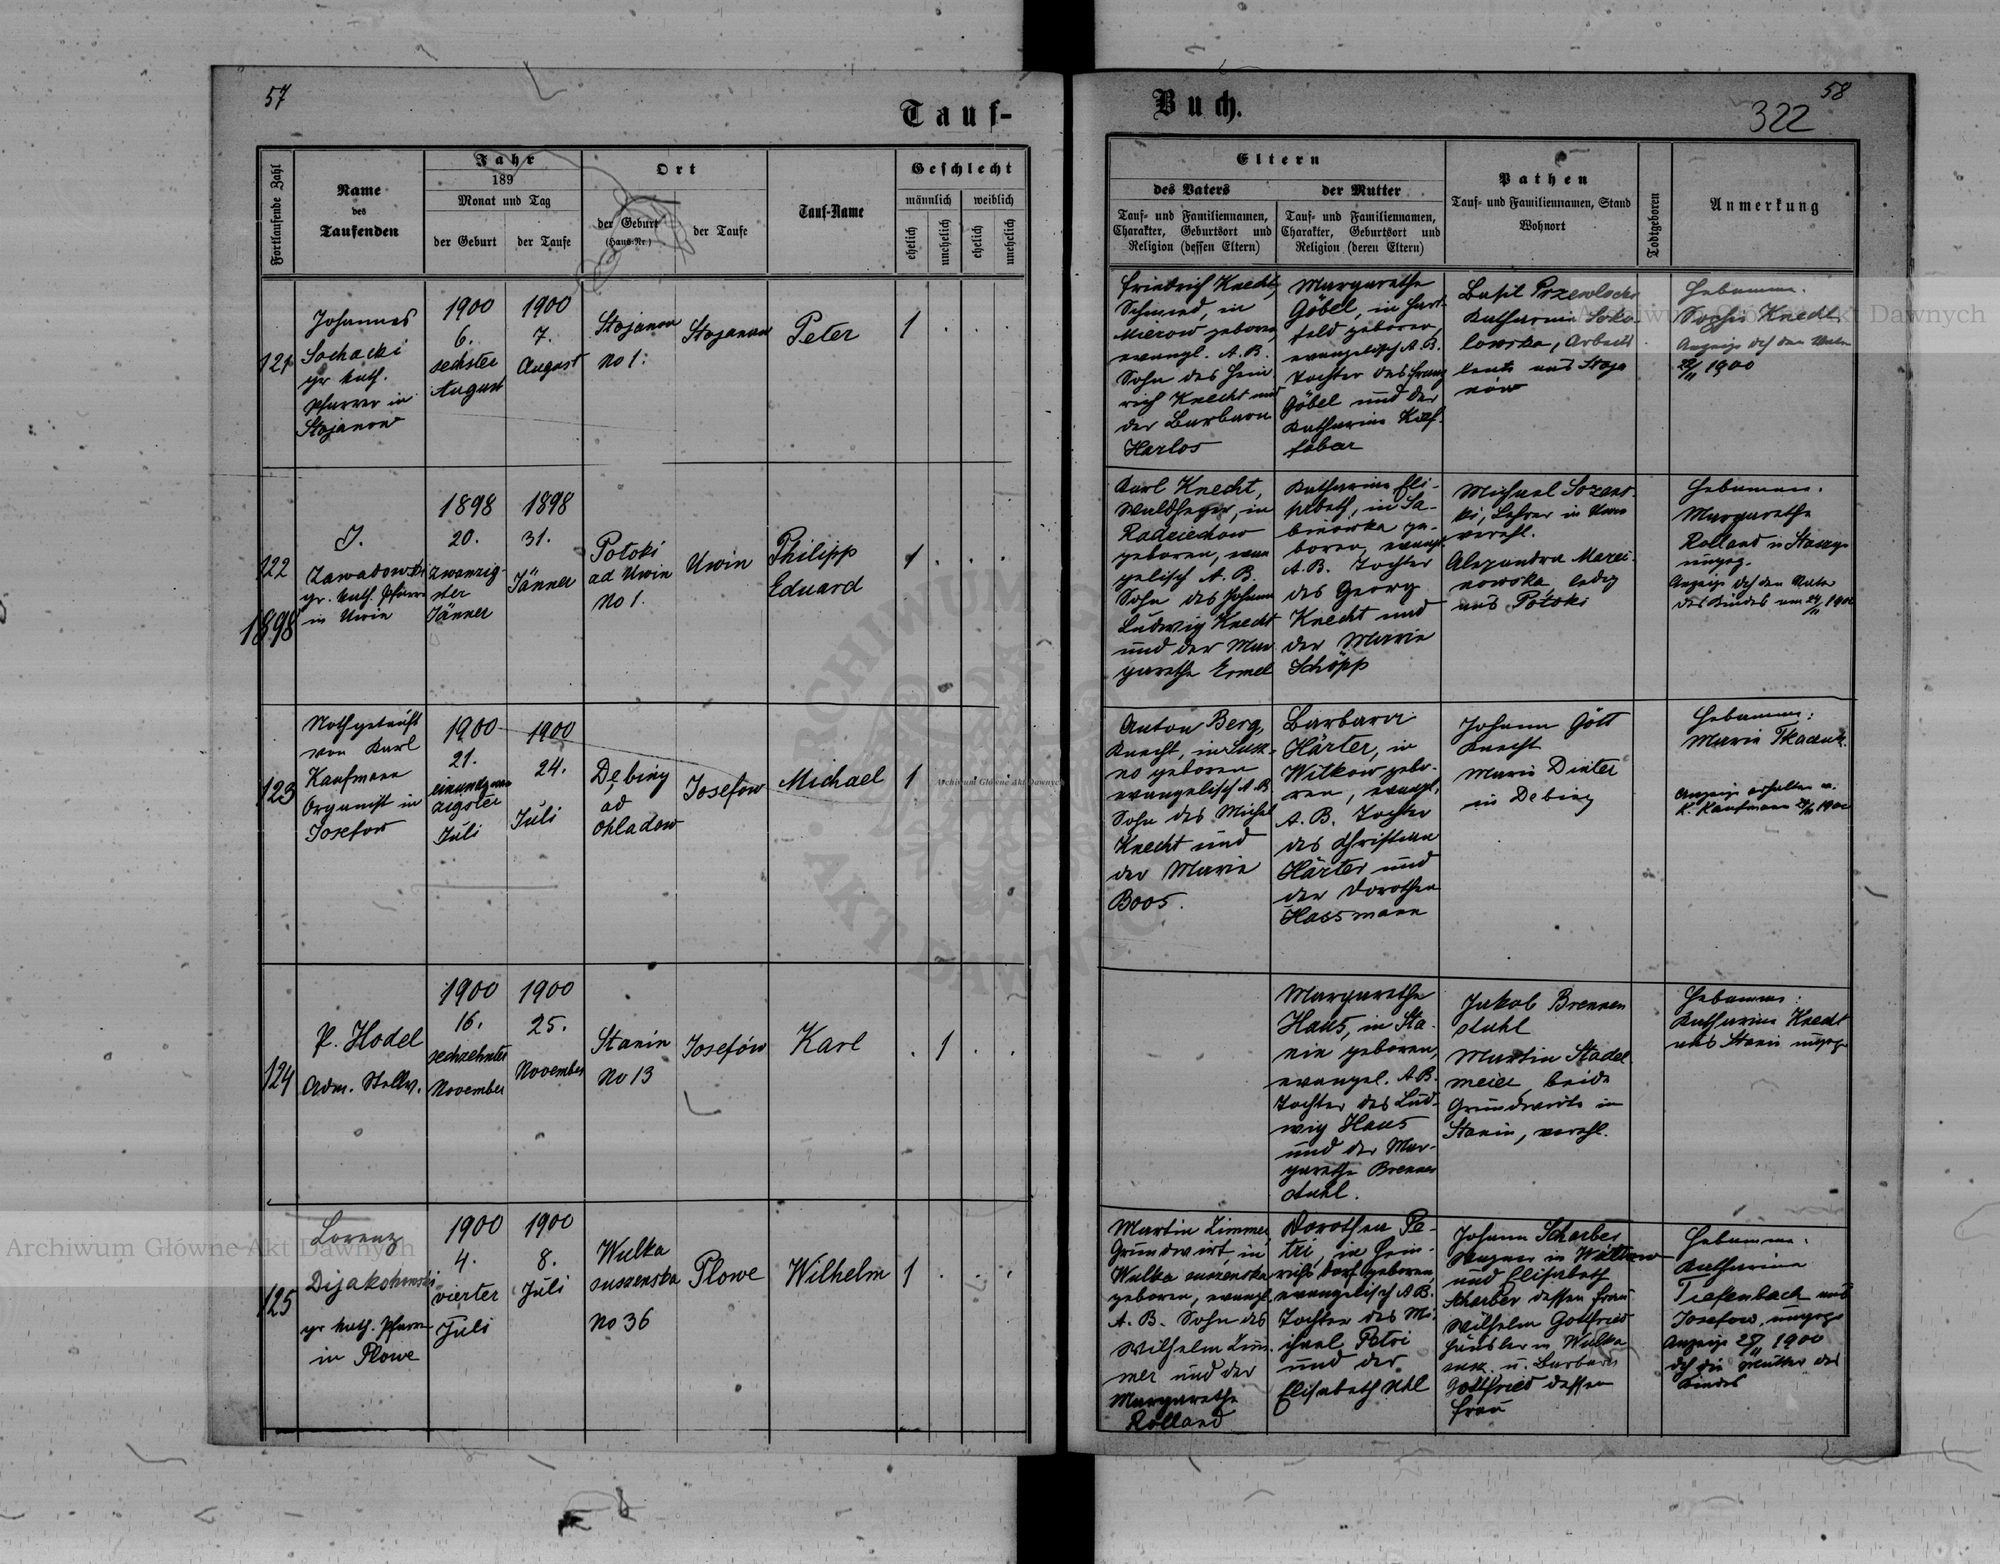 57
Tauf-
Fortlaufende Zahl
Name
des
Taufenden
Jahr
189
Monat und Tag
der Geburt
der Taufe
Ort
der Geburt
(Haus-Nr.)
der Taufe
Tauf-Name
Geschlecht
männlich
weiblich
ehelich
unehelich
ehelich
unehelich
121
Johannes
Sochacki
gr. kath.
Pfarrer in
Stojanow
1900
6.
sechster
August
1900
7.
August
Stojanow
No 1.
Stojanow
Peter
1
122
1898
J.
Zawadowski
gr. kath. Pfarrer
in Uwin
1898
20.
zwanzig-
ster
Jänner
1898
31.
Jänner
Potoki
ad Uwin
No 1.
Uwin
Philipp
Eduard
1
123
Nothgetauft
von Karl
Kaufmann
Organist in
Josefow
1900
21.
einundzwan
zigster
Juli
1900
24.
Juli
Dębiny
ad
Ohladow
Josefow
Michael
1
124
P. Hodel
Adm. Stellv.
1900
16.
sechzehnter
November
1900
25.
November
Stanin
No 13
Josefów
Karl
1
125
Lorenz
Dijakowski
gr. kath. Pfarrer
in Plowe
1900
4.
vierter
Juli
1900
8.
Juli
Wulka
suszenska
No 36
Plowe
Wilhelm
1
Buch.
58
322
Eltern
des Vaters
Tauf- und Familiennamen,
Charakter, Geburtsort und
Religion (dessen Eltern)
der Mutter
Tauf- und Familiennamen,
Charakter, Geburtsort und
Religion (deren Eltern)
Pathen
Tauf- und Familiennamen, Stand
Wohnort
Todtgeboren
Anmerkung
Friedrich Knecht,
Schmied, in
Mierow geboren,
evangl. A. B.
Sohn des Hein
rich Knecht und
der Barbara
Harlos
Margarethe
Göbel, in Hart
feld geboren,
evangelisch A. B.
Tochter des Franz
Göbel und der
Katharina
Basil Przewlocki
Katharina Soko
lowska, Arbeits
leute aus Stoja
now
Hebamme.
Sophie Knecht
Anzeige dch den Vater
1900
Karl Knecht,
Waldheger, in
Radziechow
geboren, evan
gelisch A. B.
Sohn des Johann
Ludwig Knecht
und der Mar
garethe Ermel
Katharina Eli-
sabeth, in Sa-
binowka ge-
boren, evangl.
A. B. Tochter
des Georg
Knecht und
der Marie
Schöpp
Michael
Lehrer in
verehl.
Alexandra Marci-
nowska ledig
aus Potoki
Hebamme.
Margarethe
Rolland in
ungeg.
Anzeige dch den Vater
des Kindes am 1900
Anton Berg,
Knecht, in
no geboren
evangelisch A B
Sohn des Michael
Knecht und
der Marie
Boos.
Barbara
Härter, in
Witkow gebo-
ren, evangl.
A. B. Tochter
des Christian
Härter und
der Dorothea
Hassmann
Johann Gött
Knecht
Marie Dieter
in Debiny
Hebamme:
Marie Tkaczuk
Anzeige erhalten v.
K. Kaufmann 1900
Margarethe
Haus, in Sta-
nin geboren,
evangel. A B.
Tochter des Lud-
wig Haus
und der Mar-
garethe Brennen
stuhl.
Jakob Brennen
stuhl
Martin Stadel
meier, beide
Grundwirte in
Stanin, verehl.
Hebamme:
Katharina Knecht
aus Stanin ungeg.
Martin Zimmer
Grundwirt, in
Wulka suszenska
geboren, evangl.
A. B. Sohn des
Wilhelm Zim-
mer und der
Margarethe
Rolland
Dorothea Pe-
tri, in Hein-
richsdorf geboren,
evangelisch A B.
Tochter des Mi-
chael Petri
und der
Elisabeth Uhl
Johann Scharber
Wagner in
und Elisabeth
Scharber dessen Frau
Wilhelm Gottfried
Häusler in Wulka
susz. u. Barbara
Gottfried dessen
Frau
Hebamme.
Katharina
Tiefenbach aus
Josefow, ungeg.
Anzeige 1900
dch die Mutter des
Kindes
Archiwum Główne Akt Dawnych
Archiwum Główne Akt Dawnych
Archiwum Główne Akt Dawnych